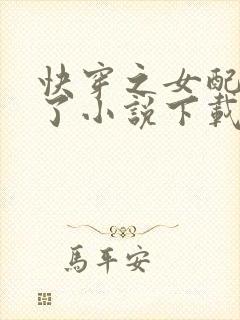 快穿之女配
了小說下載
馬平安